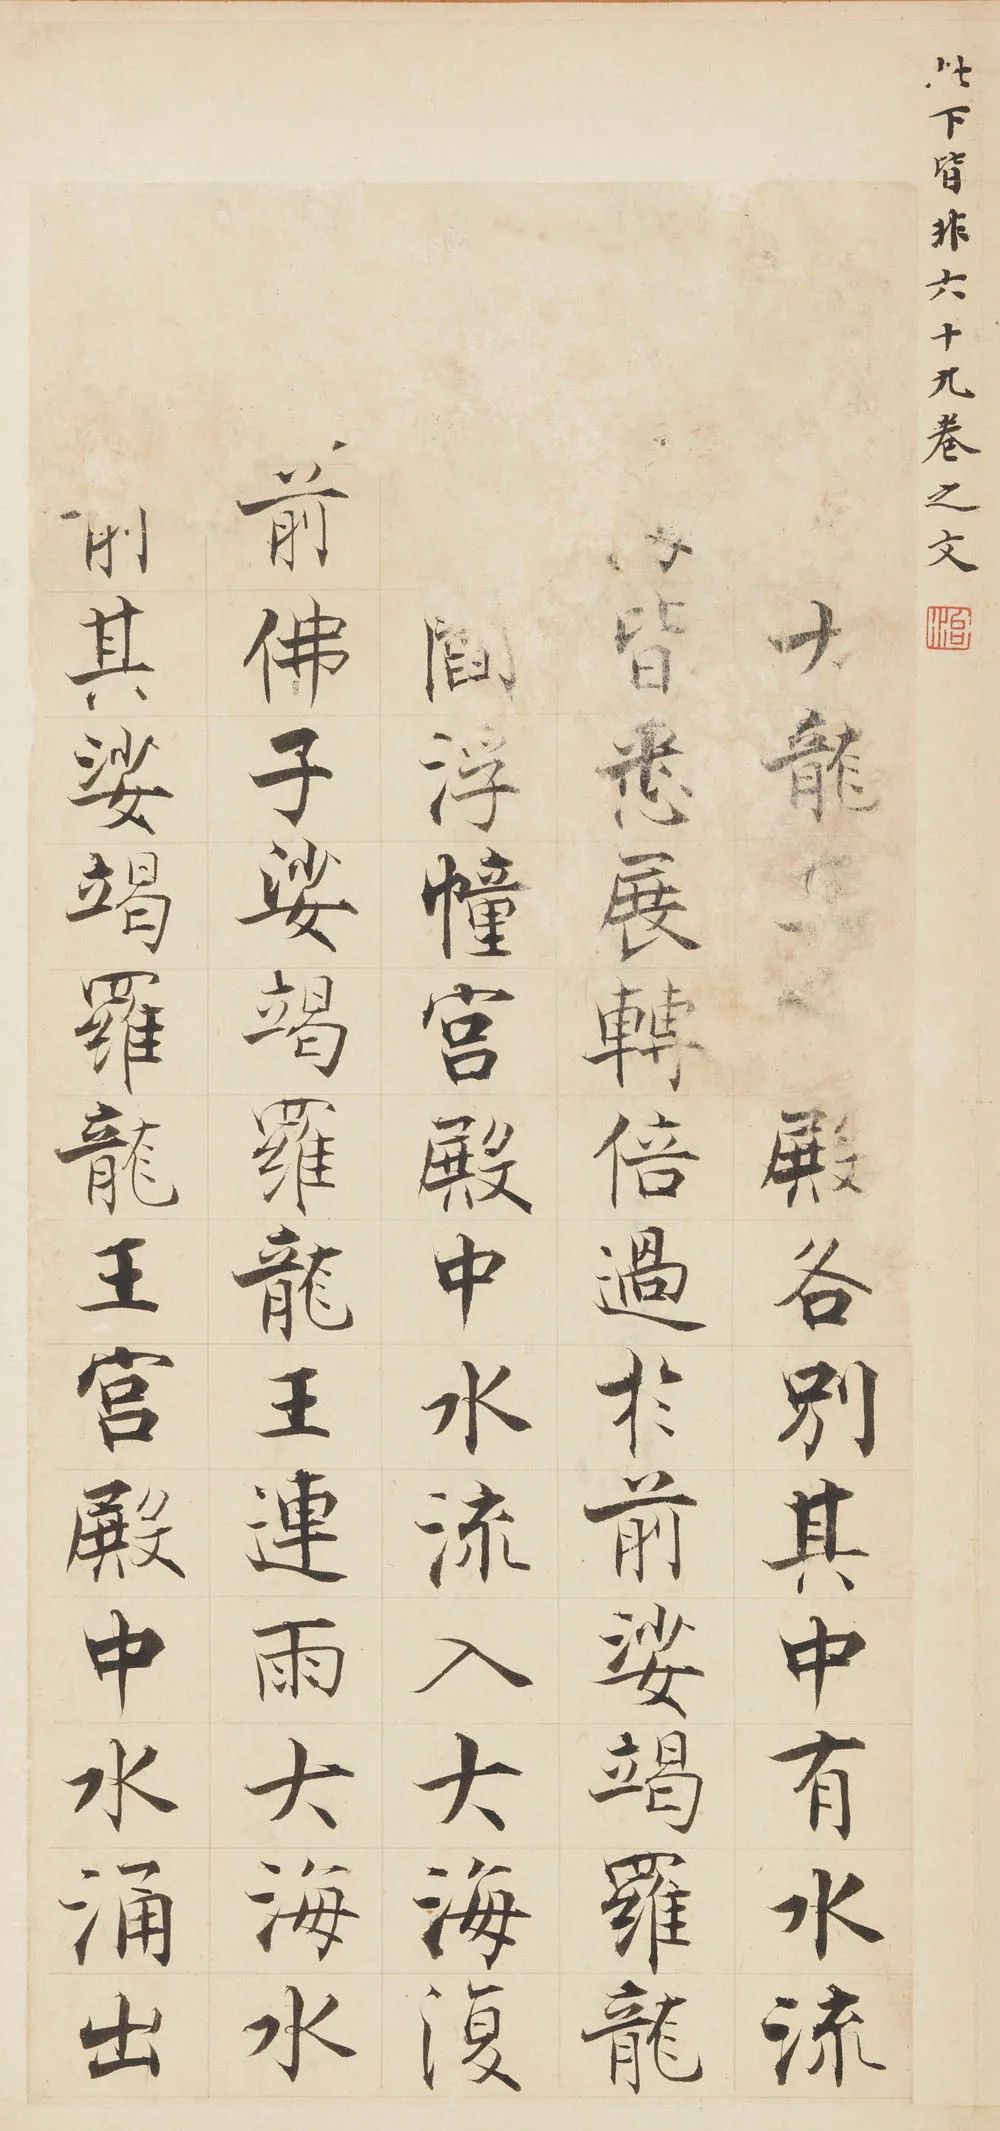 此下皆非六十九卷之文
大龍
殿各別其中有水流
皆悉展轉倍過於前娑竭羅龍
閻浮幢宮殿中水流入大海復
前佛子娑竭羅龍王連雨大海水
前其娑竭羅龍王宮殿中水涌出